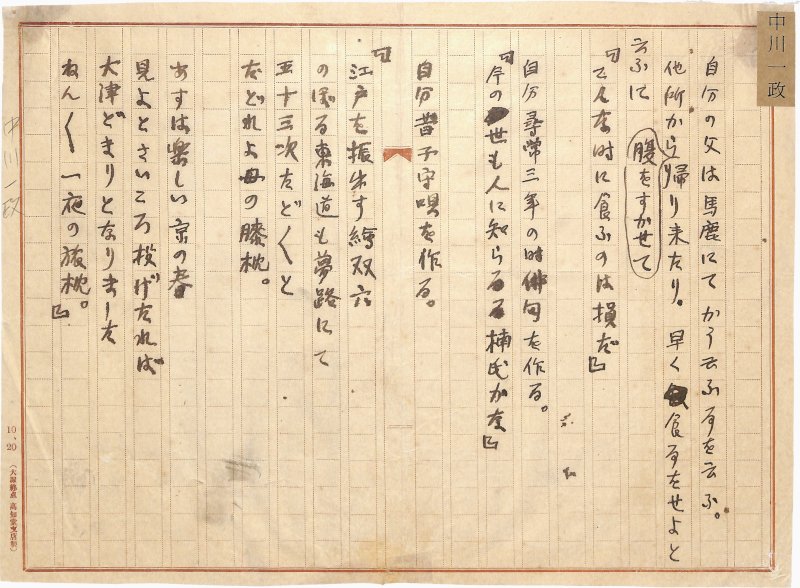 中川一政
自分の父は馬鹿にてかう云ふ事を云ふ。
他所から帰り来たり。早く食事をせよと
云ふに腹をすかせて
「こんな時に食ふのは損だ」
自分尋常三年の時俳句を作る。
「今の世も人に知らるる楠氏かな」
自分昔子守唄を作る。
「江戸を振出す絵双六
のぼる東海道も夢路にて
五十三次たどくと
たどれよ母の膝枕。
あすは楽しい京の春
見よとさいころ投げたれば
大津どまりとなりました
ねんく一夜の旅枕。」
中川一政
10、20